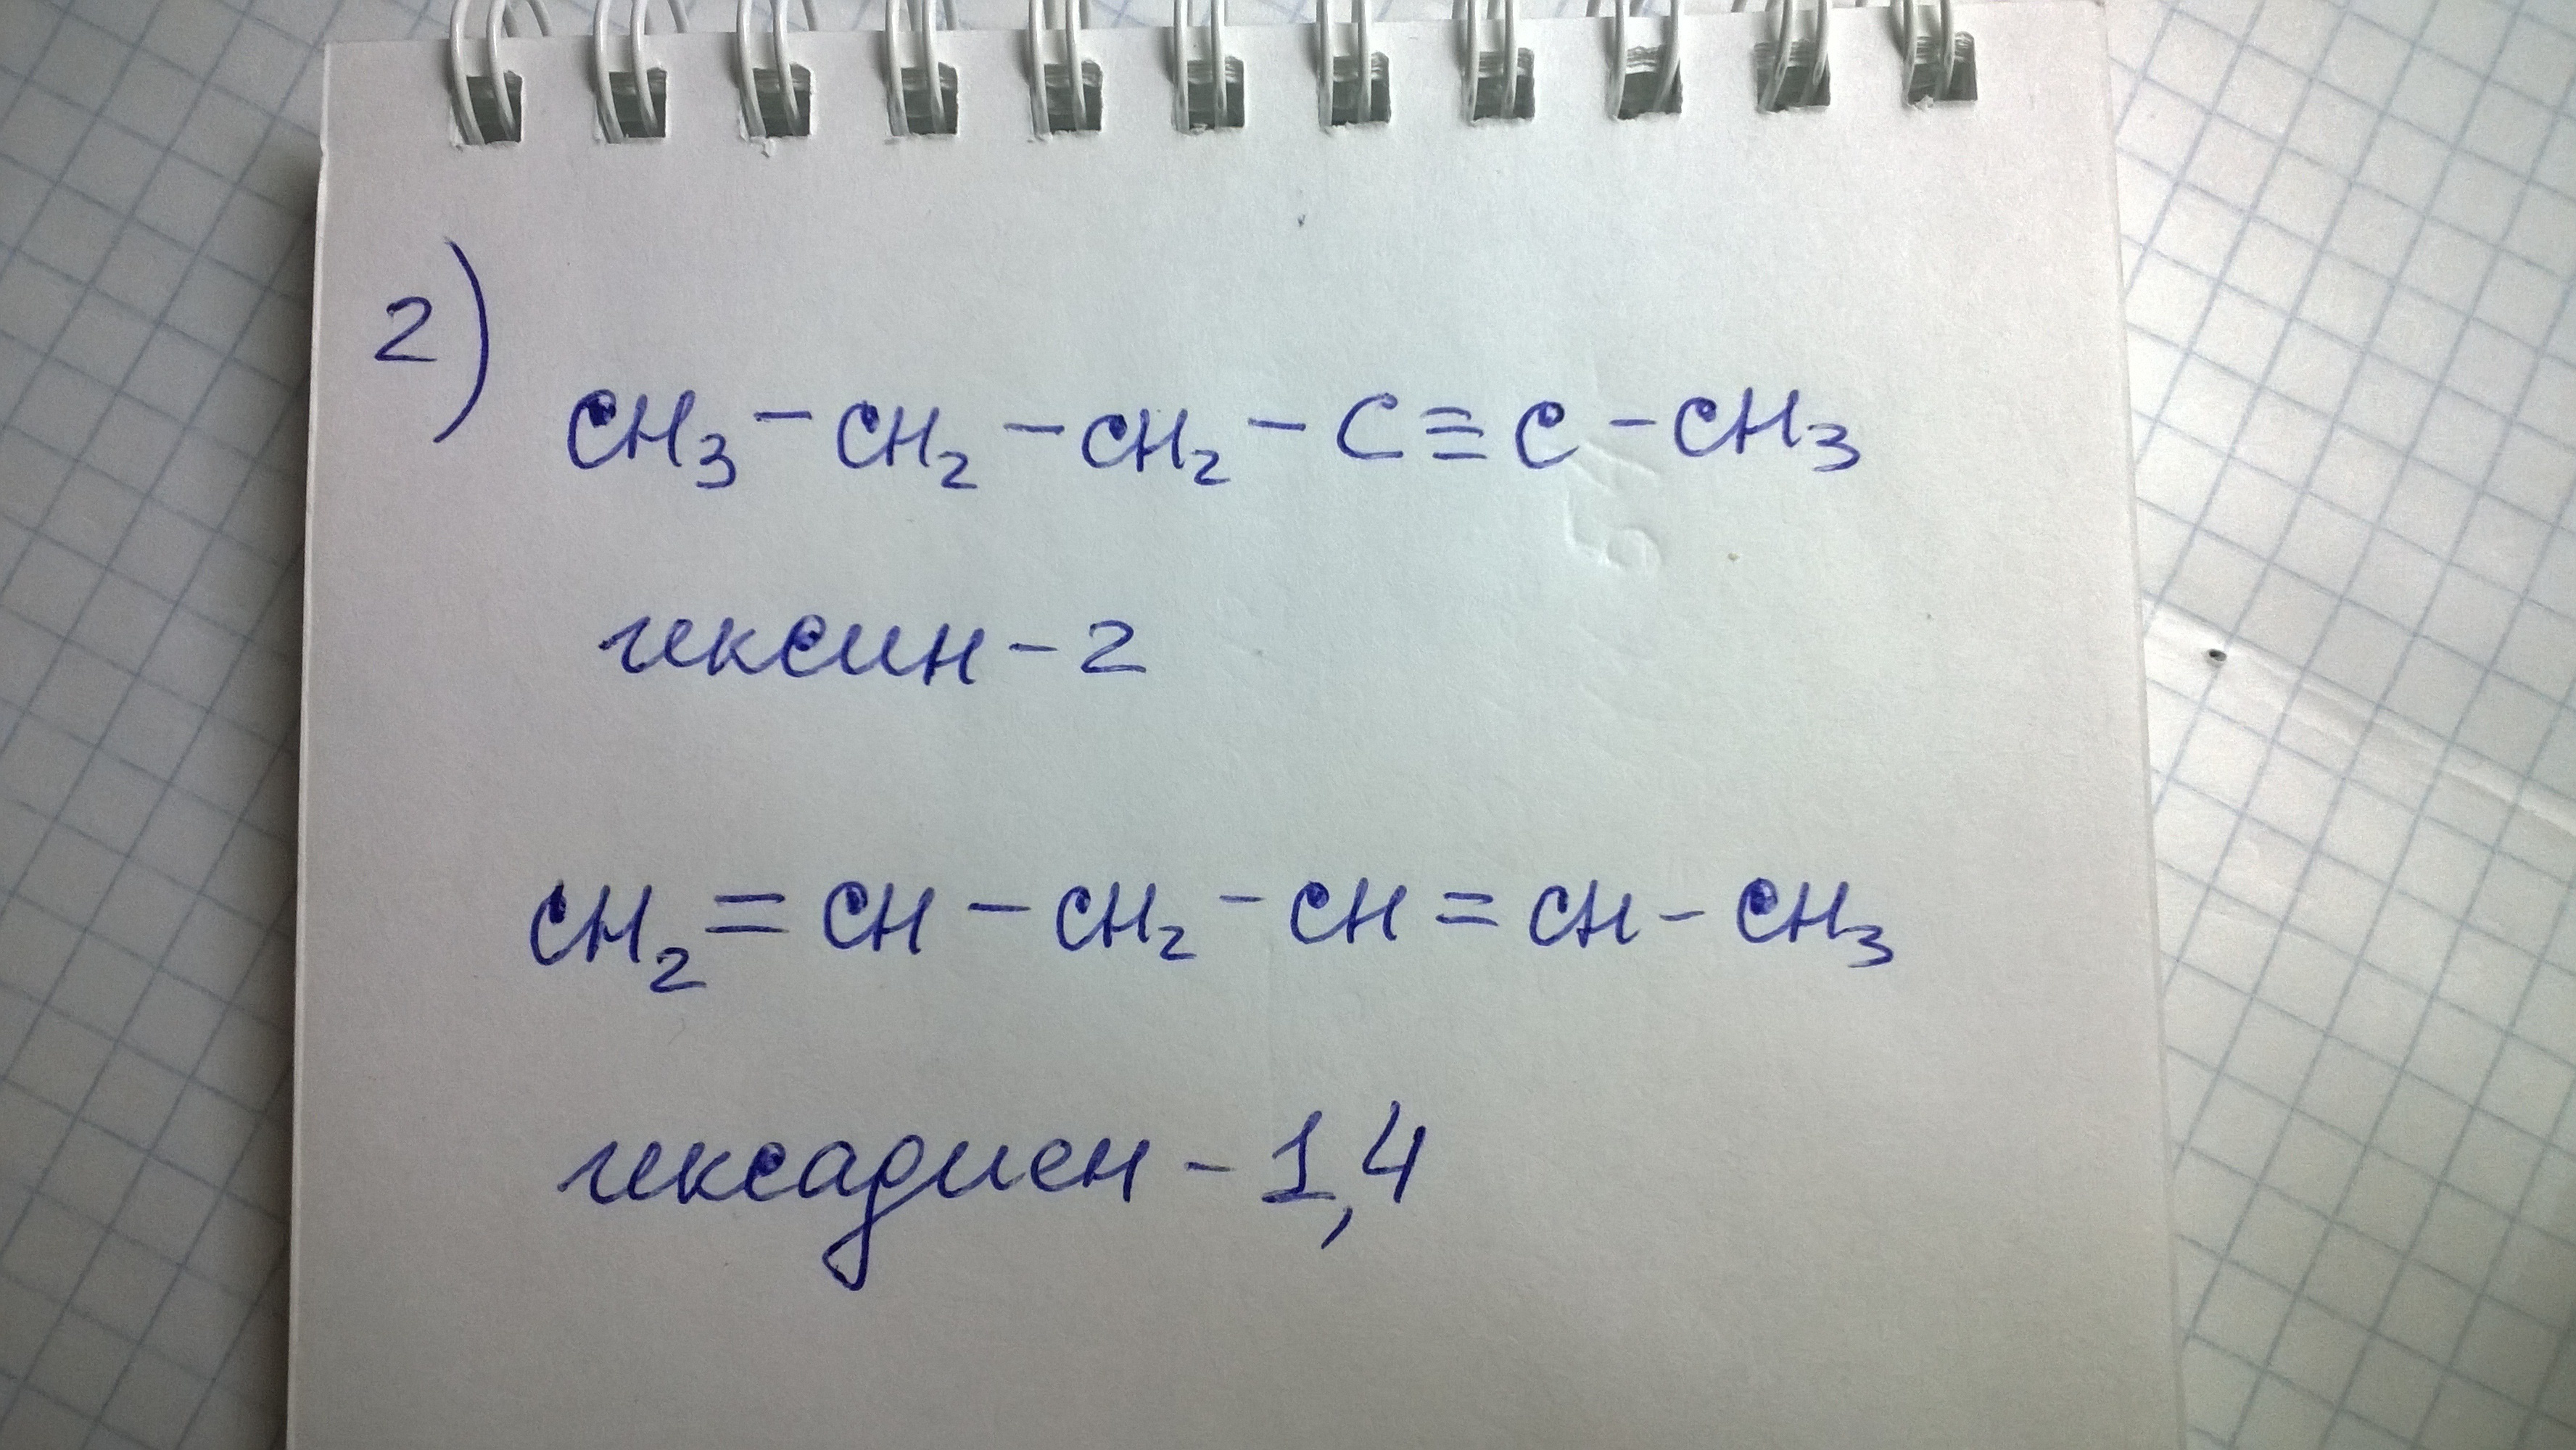 2)
CH₃ – CH₂ – CH₂ – C ≡ C – CH₃
гексин – 2
CH₂ = CH – CH₂ – CH = CH – CH₃
гексадиен – 1,4